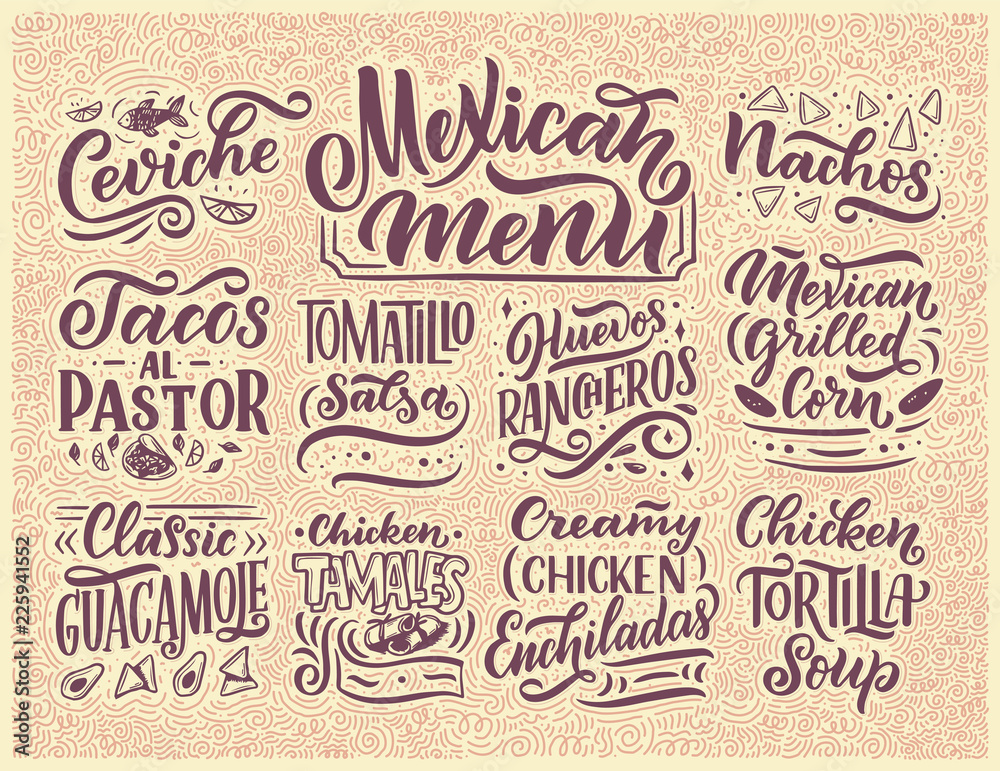 Mexican
Menu
Ceviche
Nachos
Tacos
AL
PASTOR
TOMATILLO
Salsa
Huevos
RANCHEROS
Mexican
Grilled
Corn
Classic
GUACAMOLE
Chicken
TAMALES
Creamy
CHICKEN
Enchiladas
Chicken
TORTILLA
Soup
Adobe Stock | #225941552